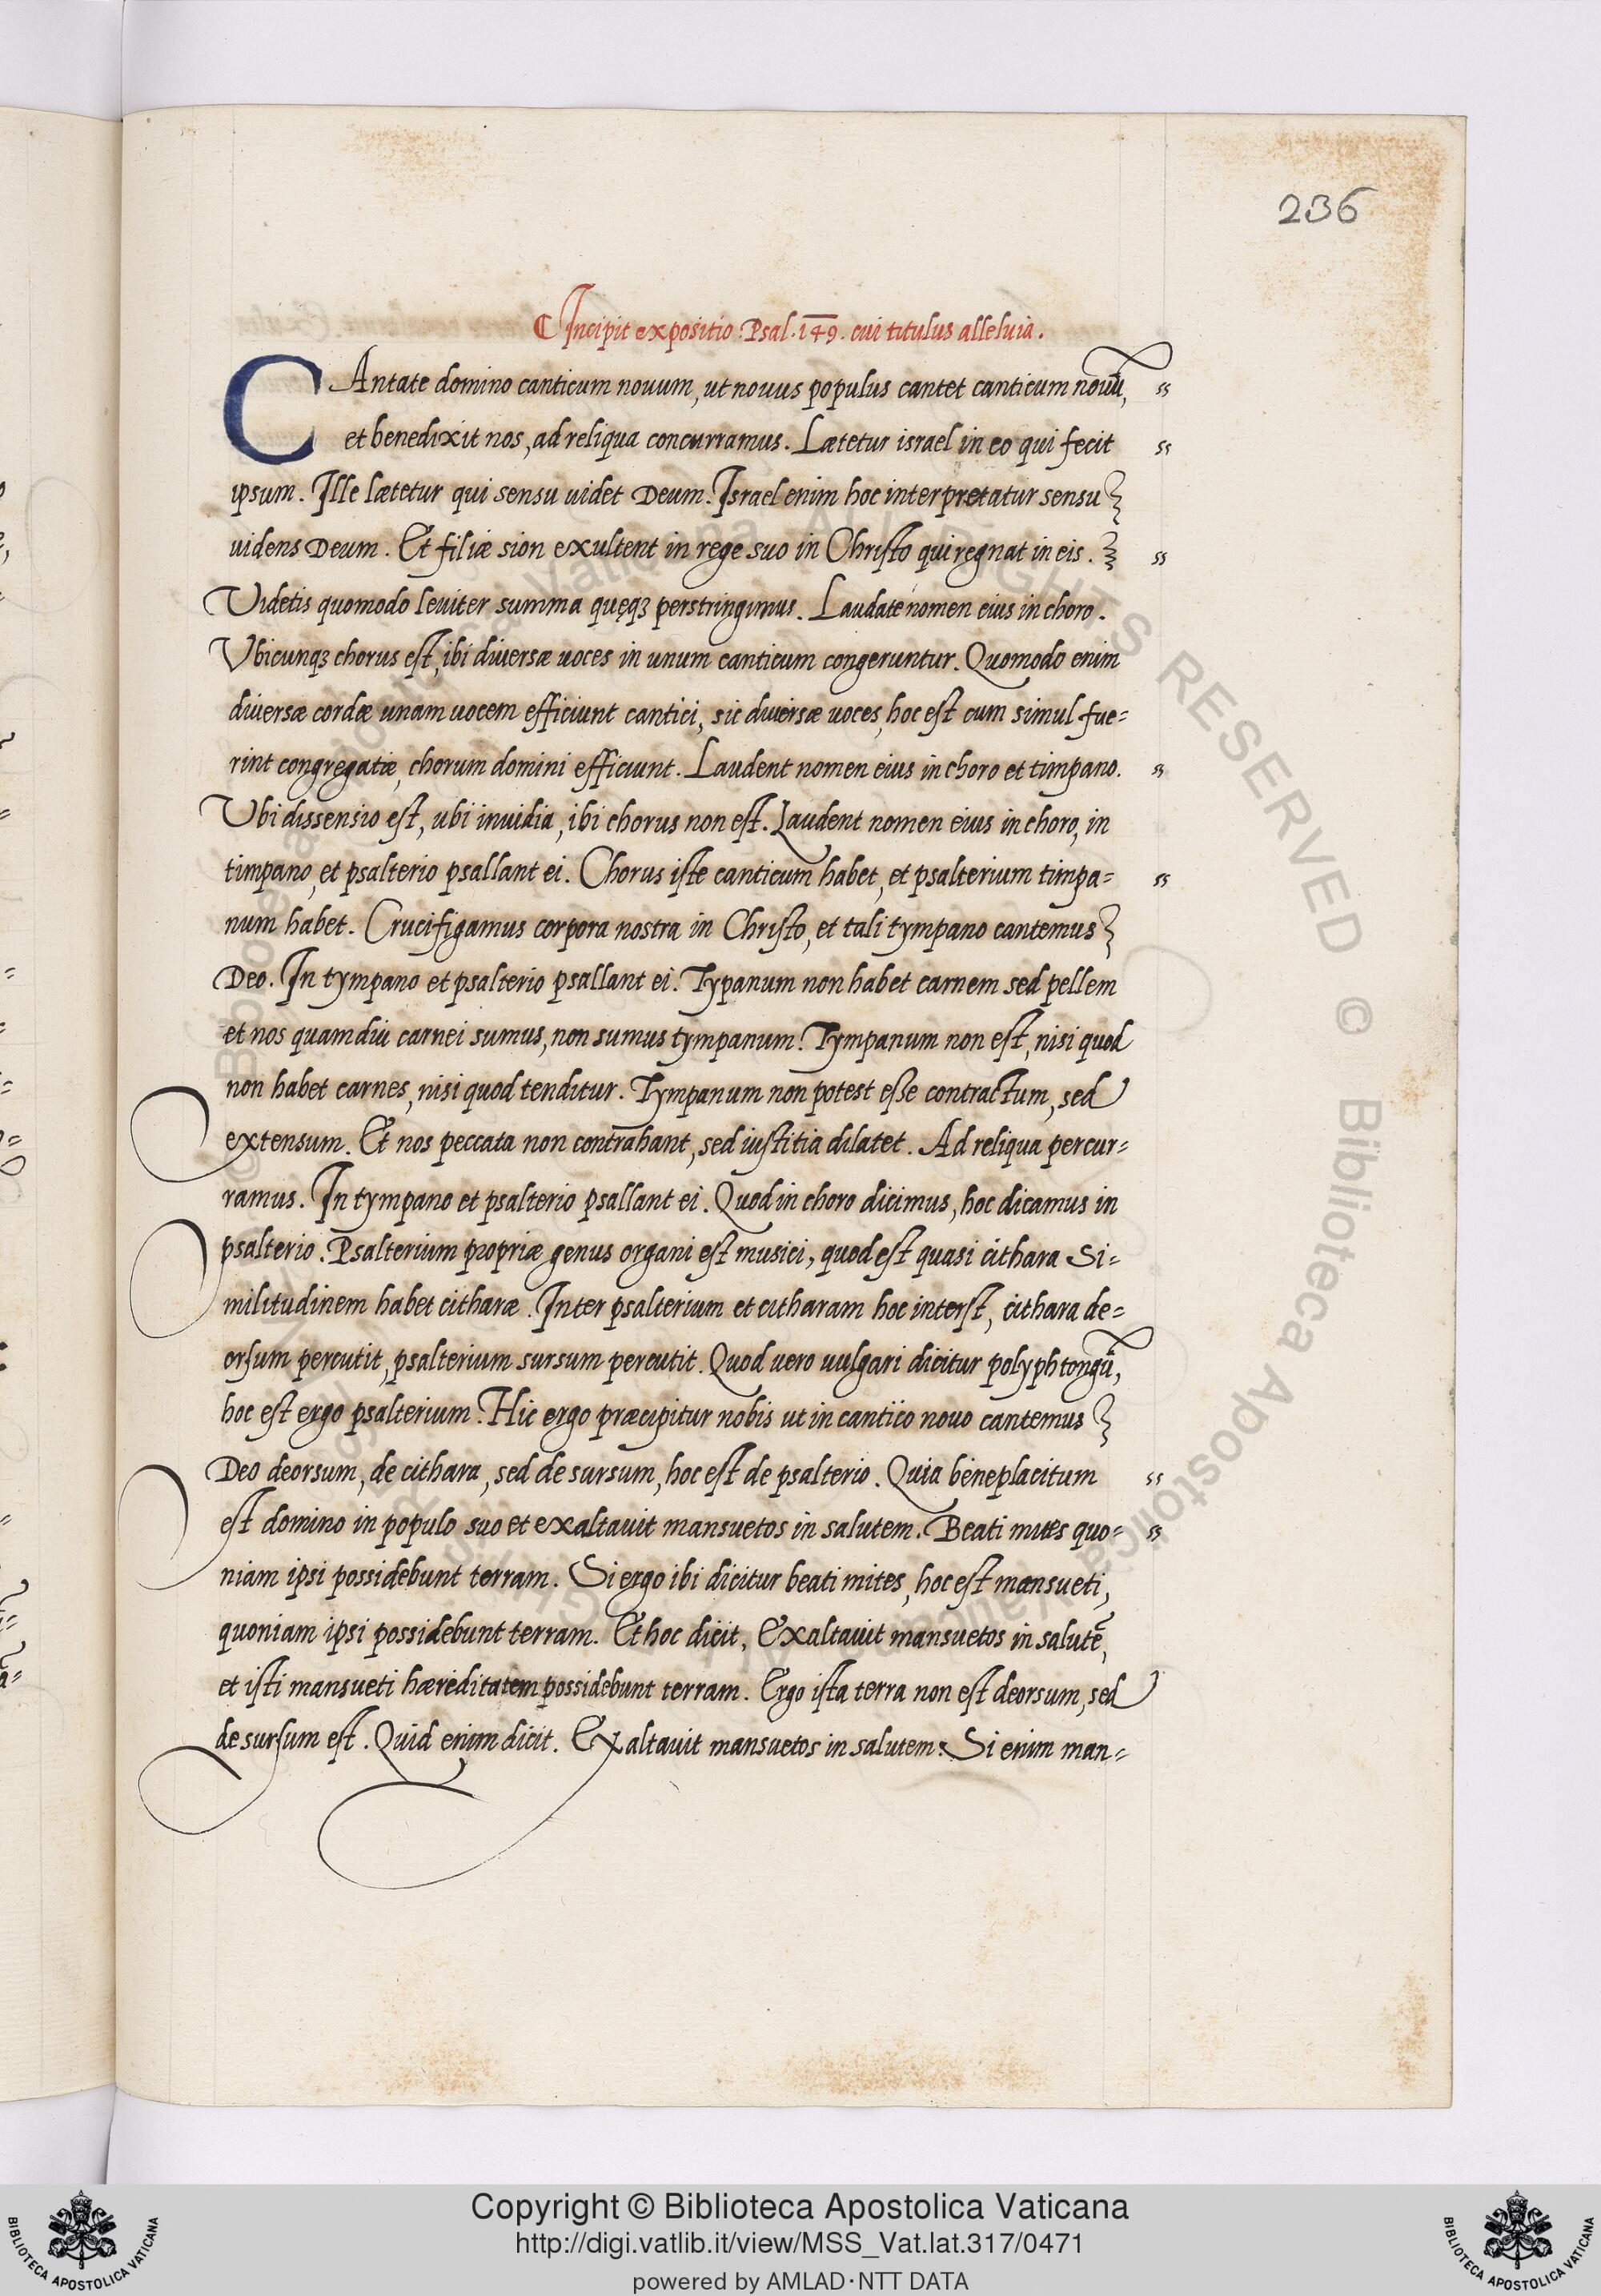 236
Incipit expositio Psal. 149. cui titulus alleluia.
CAntate domino canticum nouum, ut nouus populus cantet canticum nouũ,
et benedixit nos, ad reliqua concurramus. Lætetur israel in eo qui fecit
ipsum. Ille lætetur qui sensu uidet Deum. Israel enim hoc interpretatur sensu
uidens Deum. Et filiæ sion exultent in rege suo in Christo qui regnat in eis.
Videtis quomodo leuiter summa quęqꝫ perstringimus. Laudate nomen eius in choro.
Vbicunqꝫ chorus est, ibi diuersæ uoces in unum canticum congeruntur. Quomodo enim
diuersæ cordæ unam uocem efficiunt cantici, sic diuersæ uoces, hoc est cum simul fue=
rint congregatiæ, chorum domini efficiunt. Laudent nomen eius in choro et timpano.
Vbi dissensio est, ubi inuidia, ibi chorus non est. Laudent nomen eius in choro, in
timpano, et psalterio psallant ei. Chorus iste canticum habet, et psalterium timpa=
num habet. Crucifigamus corpora nostra in Christo, et tali tympano cantemus
Deo. In tympano et psalterio psallant ei. Typanum non habet carnem sed pellem
et nos quamdiu carnei sumus, non sumus tympanum. Tympanum non est, nisi quod
non habet carnes, nisi quod tenditur. Tympanum non potest esse contractum, sed
extensum. Et nos peccata non contrahant, sed iustitia dilatet. Ad reliqua percur=
ramus. In tympano et psalterio psallant ei. Quod in choro dicimus, hoc dicamus in
psalterio. Psalterium propriæ genus organi est musici, quod est quasi cithara Si=
militudinem habet citharæ. Inter psalterium et citharam hoc interst, cithara de=
orsum percutit, psalterium sursum percutit. Quod uero uulgari dicitur polyphtongũ,
hoc est ergo psalterium. Hic ergo præcipitur nobis ut in cantico nouo cantemus
Deo deorsum, de cithara, sed de sursum, hoc est de psalterio. Quia beneplacitum
est domino in populo suo et exaltauit mansuetos in salutem. Beati mites quo=
niam ipsi possidebunt terram. Si ergo ibi dicitur beati mites, hoc est mansueti,
quoniam ipsi possidebunt terram. Et hoc dicit, Exaltauit mansuetos in salutẽ,
et isti mansueti hæreditatem possidebunt terram. Ergo ista terra non est deorsum, sed
de sursum est. Quid enim dicit. Exaltauit mansuetos in salutem: Si enim man=
Copyright © Biblioteca Apostolica Vaticana
http://digi.vatlib.it/view/MSS_Vat.lat.317/0471
powered by AMLAD·NTT DATA